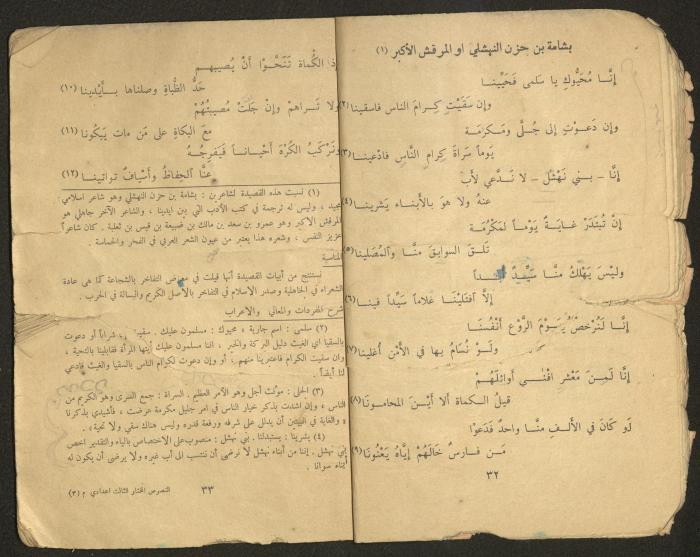 بشامة بن حزن النهشلي او المرقش الأكبر (١)
إنّا مُحَيُّوكِ يا سلمى فَحَيِّينا
وإن سَقَيْتِ كِرامَ الناس فاسقينا (٢)
وإن دَعوْتِ إلى جُلَّى ومَكرُمَة
يَوماً سَراةَ كِرامِ النَّاسِ فادْعِينا (٣)
إنَّا – بني نَهْشَل – لا نَدَّعي لأَب
عنهُ ولا هوَ بالأَبناء يَشرينا (٤)
إنْ تُبْتَدَرْ غايَةٌ يَوْماً لمَكْرُمَة
تَلقَ السوابِقَ منَّا والمُصَلينا (٥)
وليْسَ يَهْلكُ منَّا سَيِّدٌ أبداً
إلاَّ افتَلَيْنَا غُلاماً سَيِّداً فينا (٦)
إنَّا لَنُرْخِصُ يَومَ الرَّوْع أنْفُسَنَا
ولَوْ نُسَامُ بها في الأمْنِ أُغلينا (٧)
إنَّا لَمِنْ مَعْشَر افنى أوائِلَهُمْ
قيلُ الكماة ألا أيْنَ المحامونا (٨)
لَو كَانَ في الألفِ منَّا واحدٌ فدَعَوْا
مَن فارسٌ خَالَهُمْ إيَّاهُ يَعْنُونَا (٩)
٣٢
إذ الكُماة تَنَحَّوْا أنْ يُصيبهم
حَدُّ الظُّباةِ وصلناها بأيْدينا (١٠)
ولا تَراهمْ وإنْ جَلَّتْ مُصيبتُهُمْ
معَ البكاةِ على مَن مات يَبكُونا (١١)
ونَرْكَبُ الكُرْهَ أحْياناً فَيَفرِجُهُ
عنَّا الحِفاظُ وأسْيافٌ تواتينا (١٢)
(١) نسبت هذه القصيدة لشاعرين : بشامة بن حزن النهشلي وهو شاعر اسلامي
مجيد ، وليس له ترجمة في كتب الأدب التي بين ايدينا ، والشاعر الآخر جاهلي هو
المرقش الاكبر وهو عمرو بن سعد بن مالك بن ضبيعة بن قيس بن ثعلبة . كان شاعراً
عزيز النفس ، وشعره هذا يعتبر من عيون الشعر العربي في الفخر والحماسة .
المناسبة
نستنتج من أبيات القصيدة أنها قيلت في معرض التفاخر بالشجاعة كما هي عادة
الشعراء في الجاهلية وصدر الاسلام في التفاخر بالأصل الكريم والبسالة في الحرب .
شرح المفردات والمعاني والاعراب
(٢) سلمى : اسم جارية ، محيوك : مسلمون عليك . سقيت ، شراباً أو دعوت
بالسقيا اي الغيث دليل البركة والخير . اننا مسلمون عليك أيتها المرأة فقابلينا بالتحية ،
وان سقيت الكرام فاعتبرينا منهم ، أو وإن دعوت لكرام الناس بالسقيا والغيث فادعي
لنا أيضاً .
(٣) الجلى : مؤنث أجل وهو الأمر العظيم . السراة : جمع السرى وهو الكريم من
الناس ، وإن اشدت بذكر خيار الناس في امر جليل مكرمة عرضت ، فأشيدي بذكرنا
، والغاية في البيتين أن يدلل على شرفه ورفعة قدره وليس هناك سقي ولا تحية .
(٤) يشرينا : يستبدلنا . بني نهشل : منصوب على الاختصاص بالياء والتقدير اخص
بني نهشل . إننا من أبناء نهشل لا نرضى أن ننتسب الى أب غيره ولا يرضى أن يكون له
أبناء سوانا .
٣٣
النصوص المختار الثالث اعدادي م (٣)